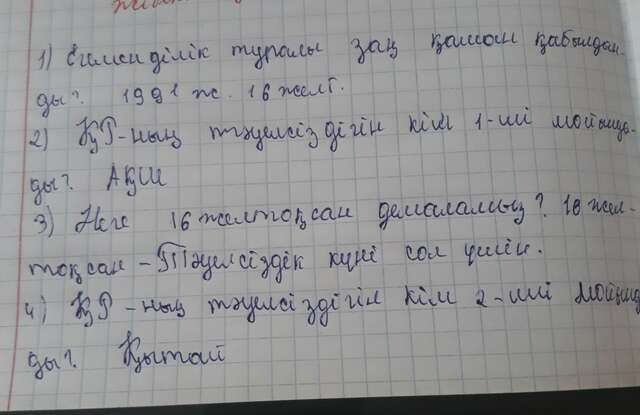 1) Егеменділік туралы заң қашан қабылдан-
ды? 1991 ж. 16 желт.
2) ҚР-ның тәуелсіздігін кім 1-ші мойында-
ды? АҚШ
3) Неге 16 желтоқсан демаламыз? 16 жел-
тоқсан - Тәуелсіздік күні сол үшін.
4) ҚР-ның тәуелсіздігін кім 2-ші мойында
ды? Қытай